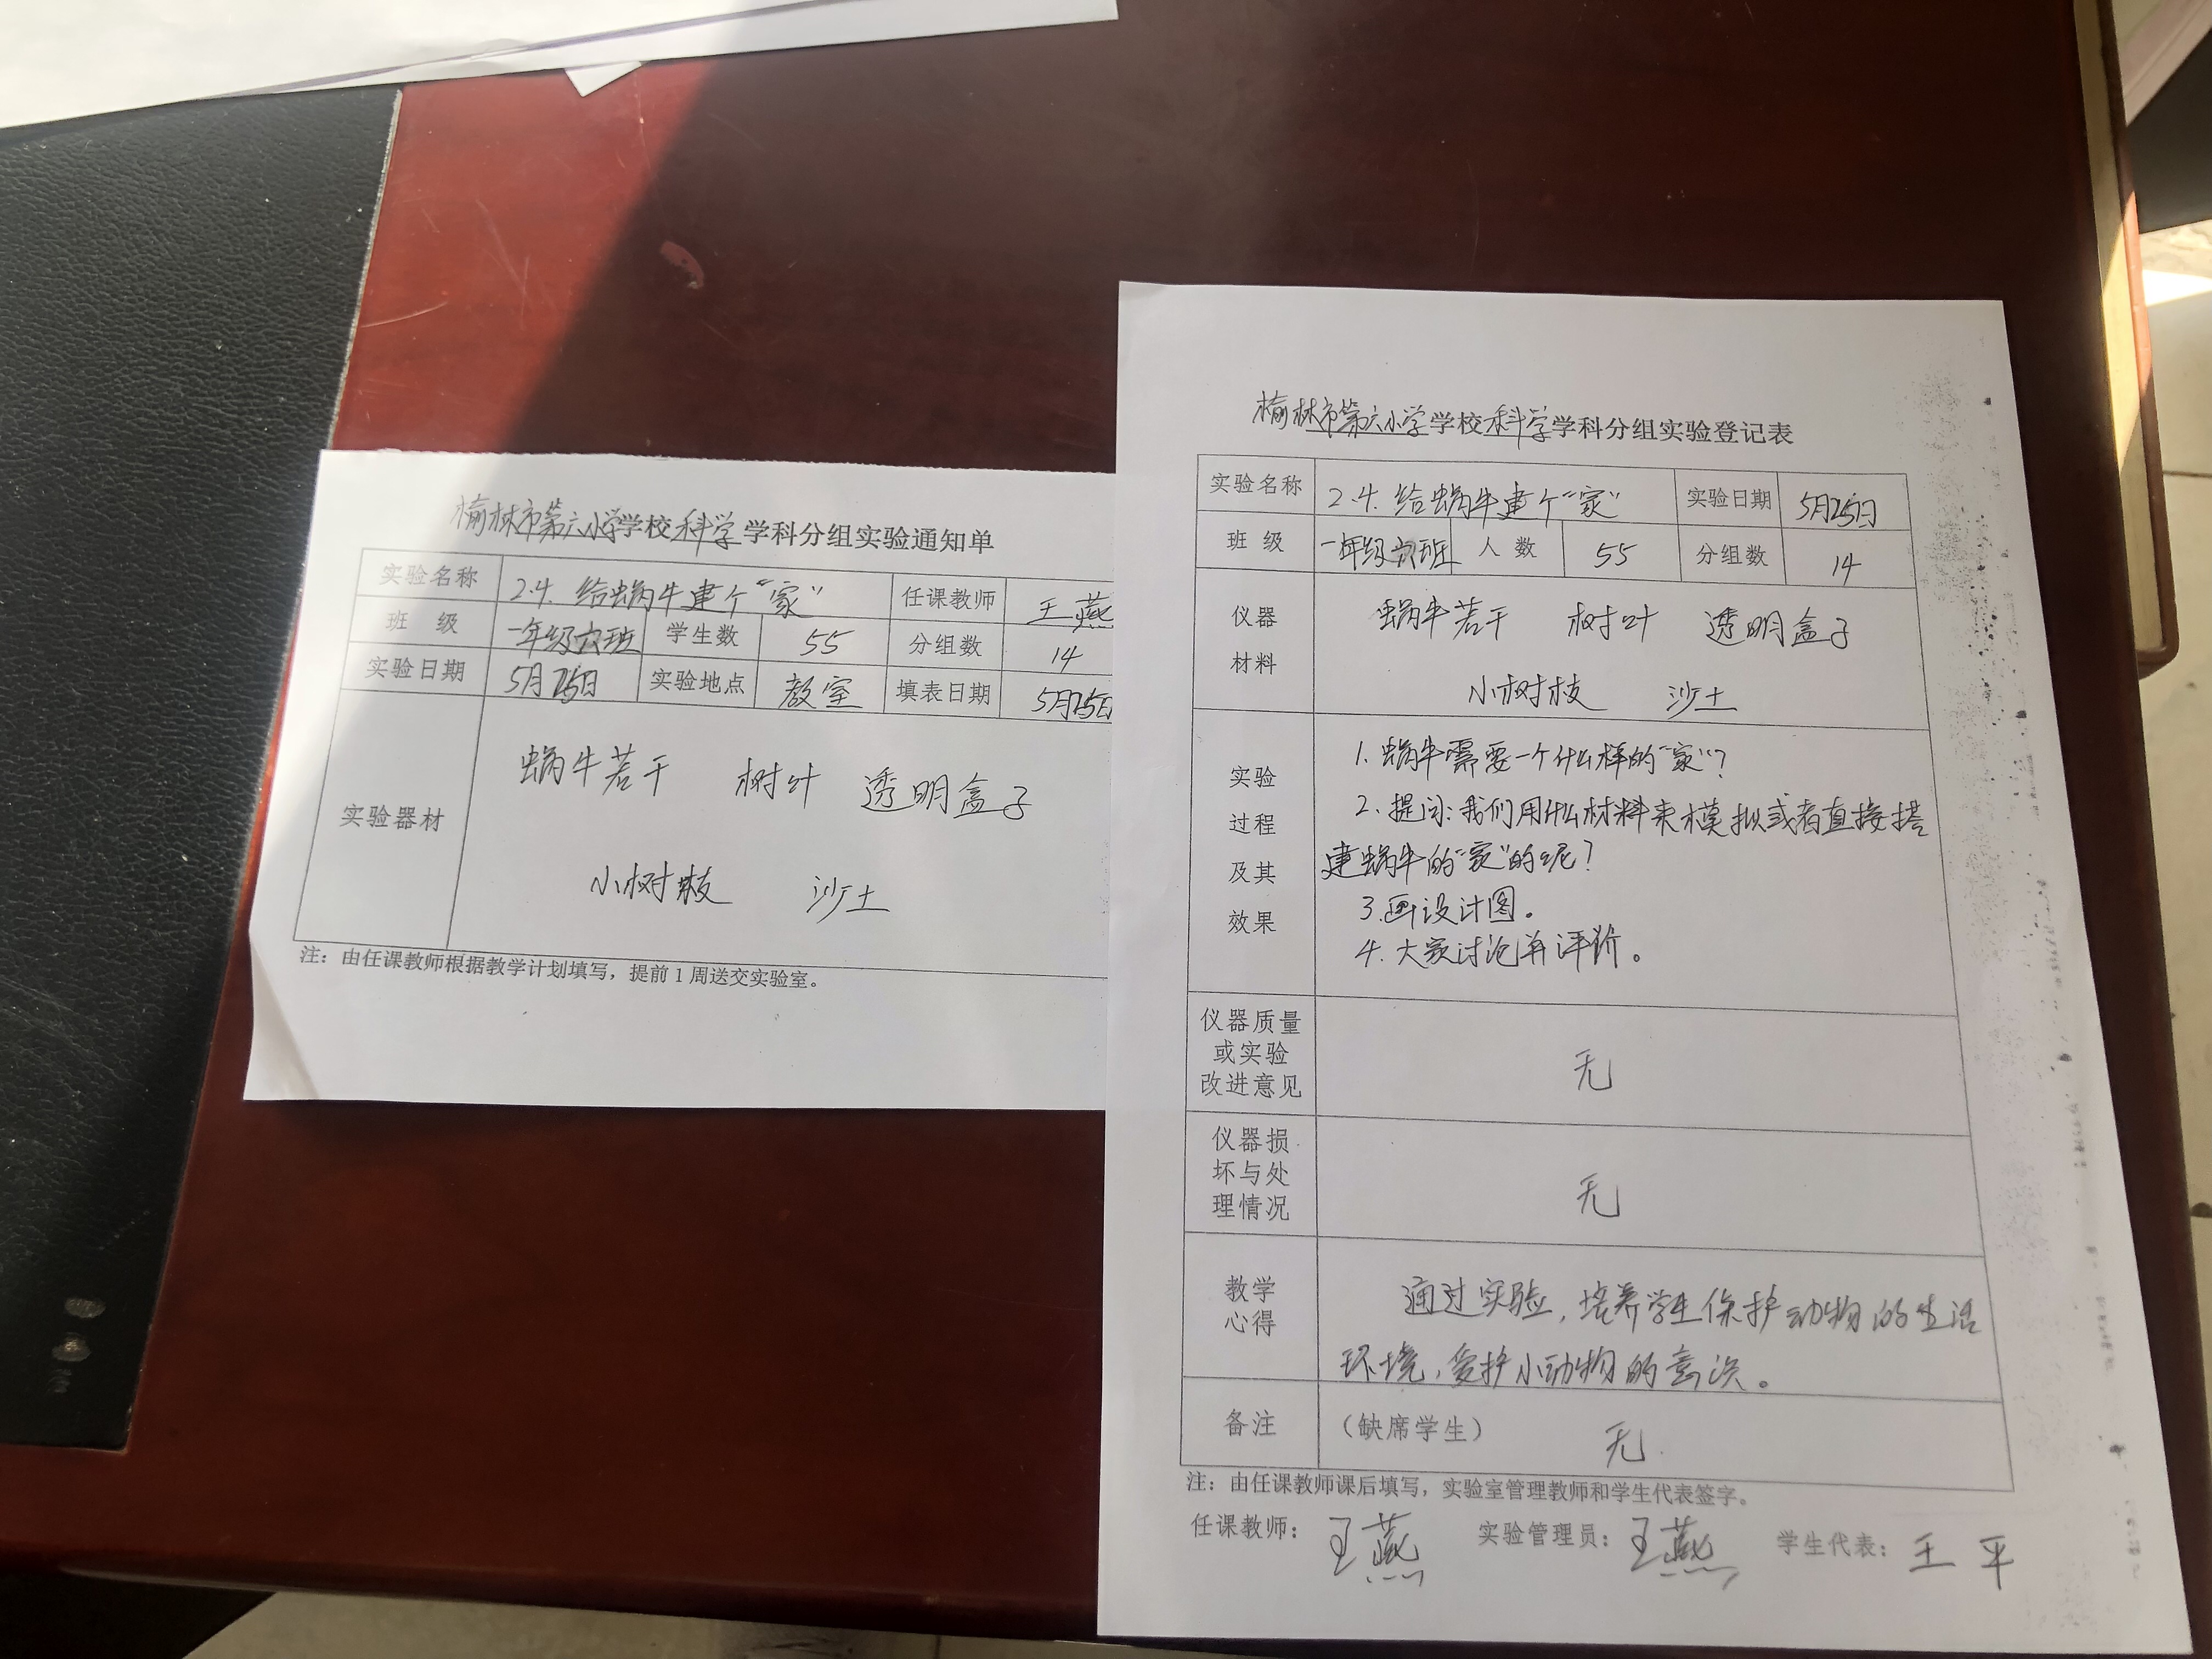 榆林市第六小学学校科学学科分组实验通知单
实验名称 2.4.给蜗牛建个“家” 任课教师 王燕
班 级 一年级六班 学生数 55 分组数 14
实验日期 5月25日 实验地点 教室 填表日期 5月25日
实验器材
蜗牛若干 树叶 透明盒子
小树枝 沙土
注：由任课教师根据教学计划填写，提前1周送交实验室。
榆林市第六小学学校科学学科分组实验登记表
实验名称 2.4.给蜗牛建个“家” 实验日期 5月25日
班 级 一年级六班 人 数 55 分组数 14
仪器
材料
蜗牛若干 树叶 透明盒子
小树枝 沙土
实验
过程
及其
效果
1.蜗牛需要一个什么样的“家”？
2.提问：我们用什么材料来模拟或者直接搭
建蜗牛的“家”的呢？
3.画设计图。
4.大家讨论并评价。
仪器质量
或实验
改进意见
无
仪器损
坏与处
理情况
无
教学
心得
通过实验，培养学生保护动物的生活
环境，爱护小动物的意识。
备注 （缺席学生） 无
注：由任课教师课后填写，实验室管理教师和学生代表签字。
任课教师：王燕 实验管理员：王燕 学生代表：王平